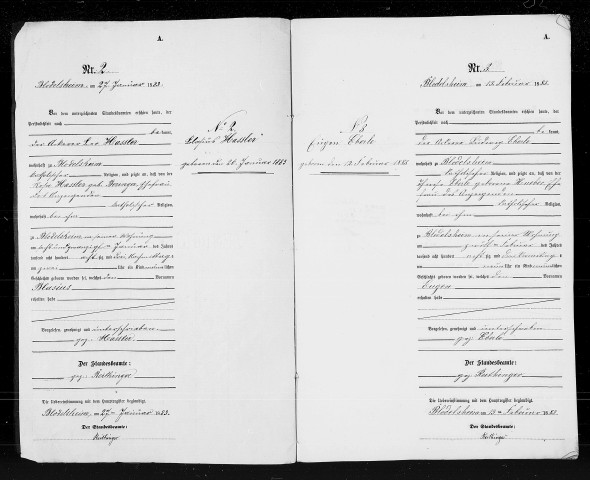 A.
Nr. 2
Blodelsheim am 27. Januar 1883.
Vor dem unterzeichneten Standesbeamten erschien heute, der
Persönlichkeit nach be kannt,
der Ackerer Leo Hassler
wohnhaft zu Blodelsheim
katholischer Religion, und zeigte an, daß von der
Hassler geb. Ehefrau
des Anzeigenden
katholischer Religion,
wohnhaft bei ihm
zu Blodelsheim in seiner Wohnung
am sechsundzwanzigsten Januar des Jahres
tausend acht hundert achtzig und drei Nachmittags
um zwei Uhr ein Kind männlichen
Geschlechts geboren worden sei, welches den Vornamen
Blasius
erhalten habe
Vorgelesen, genehmigt und unterschrieben
gez. Hassler
Der Standesbeamte:
gez. Reithinger
Die Uebereinstimmung mit dem Hauptregister beglaubigt.
Blodelsheim, am 27. Januar 1883.
Der Standesbeamte:
Reithinger
No. 2
Blasius Hassler
geboren den 26. Januar 1883
No. 3
Eugen Eberle
geboren den 12. Februar 1883
A.
Nr. 3
Blodelsheim am 13. Februar 1883.
Vor dem unterzeichneten Standesbeamten erschien heute, der
Persönlichkeit nach be kannt,
der Ackerer Ludwig Eberle
wohnhaft zu Blodelsheim
katholischer Religion, und zeigte an, daß von der
Eberle geborene Ehe
frau des Anzeigenden
katholischer Religion,
wohnhaft bei ihm
zu Blodelsheim in seiner Wohnung
am zwölften Februar des Jahres
tausend acht hundert achtzig und drei Vormittags
um neun Uhr ein Kind männlichen
Geschlechts geboren worden sei, welches den Vornamen
Eugen
erhalten habe
Vorgelesen, genehmigt und unterschrieben
gez. Eberle
Der Standesbeamte:
gez. Reithinger
Die Uebereinstimmung mit dem Hauptregister beglaubigt.
Blodelsheim am 13. Februar 1883.
Der Standesbeamte:
Reithinger